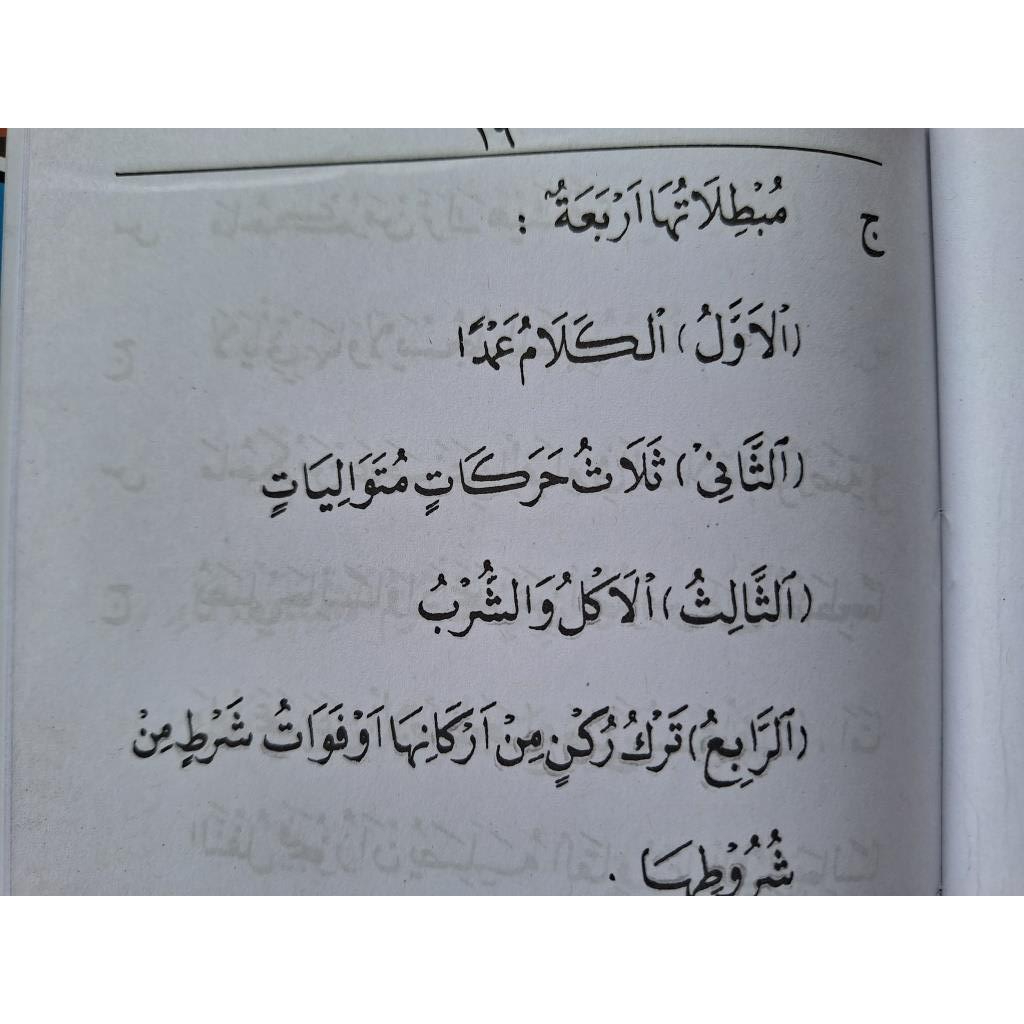 ١٦
ج مُبْطِلَاتُهَا اَرْبَعَةٌ :
(اْلاَوَّلُ) اْلكَلَامُ عَمْدًا
(اَلثَّانِيْ) ثَلَاثُ حَرَكَاتٍ مُتَوَالِيَاتٍ
(اَلثَّالِثُ) اْلاَكْلُ وَالشُّرْبُ
(اَلرَّابِعُ) تَرْكُ رُكْنٍ مِنْ اَرْكَانِهَا اَوْفَوَاتُ شَرْطٍ مِنْ
شُرُوْطِهَا .